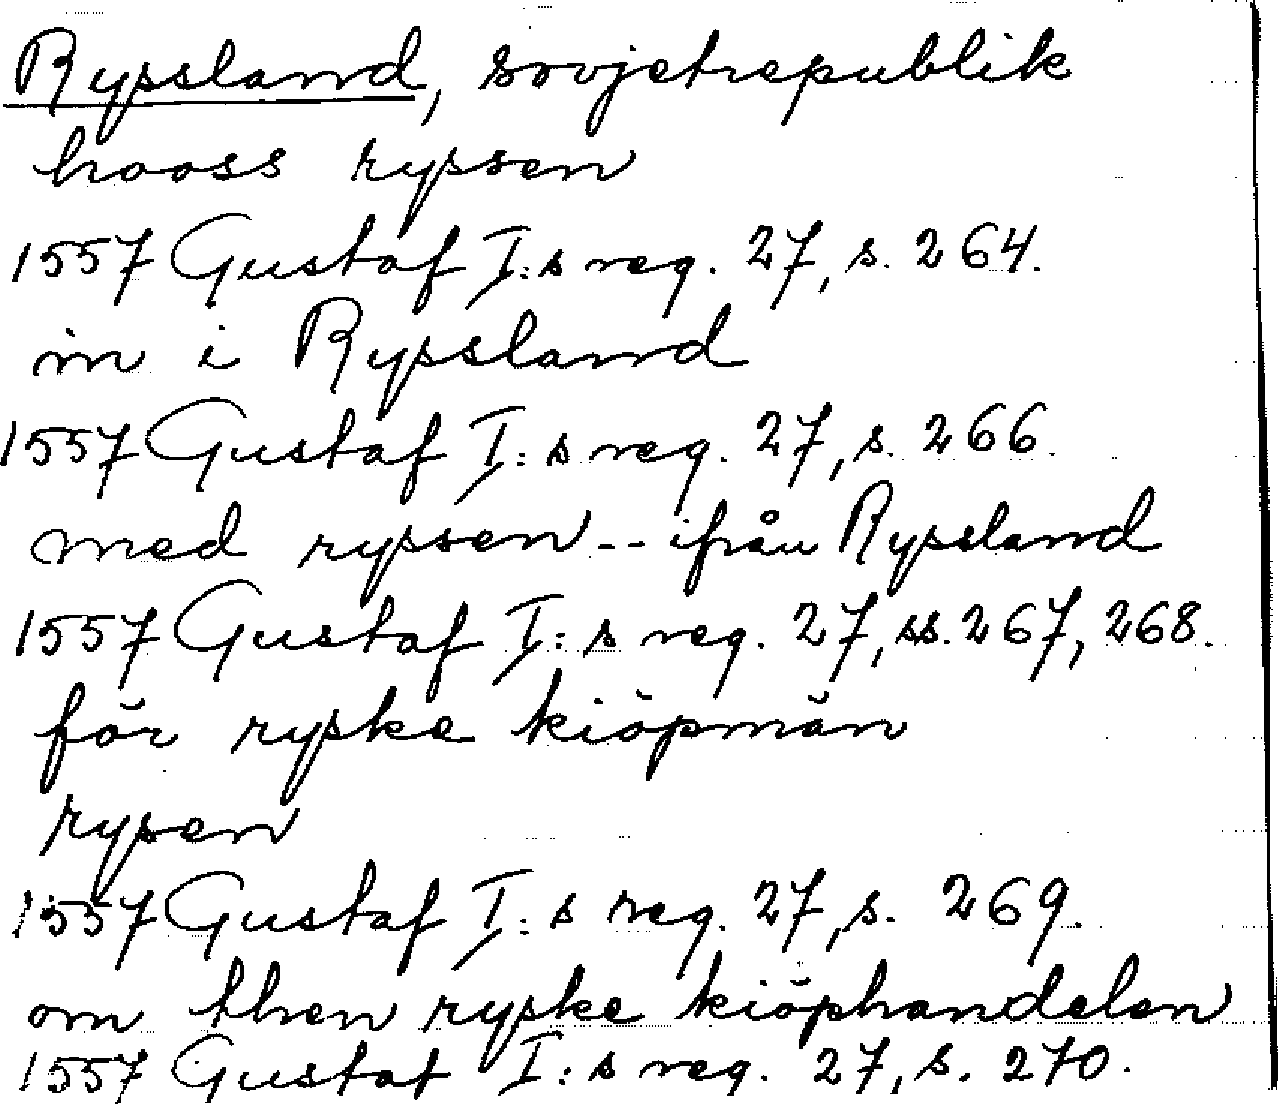 Ryssland, sovjetrepublik
hooss ryssen
1557 Gustaf I:s reg. 27, s. 264.
in i Ryssland
1557 Gustaf I:s reg. 27, s. 266.
med ryssen -- ifrån Ryssland
1557 Gustaf I:s reg. 27, ss. 267, 268.
för ryske kiöpmän
rysen
1557 Gustaf I:s reg. 27, s. 269.
om then ryske kiöphandelen
1557 Gustaf I:s reg. 27, s. 270.